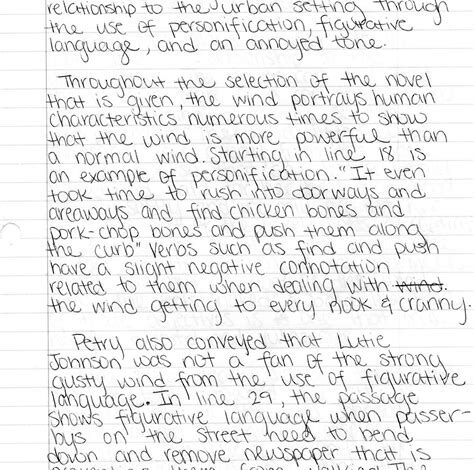 relationship to the urban setting through
the use of personification, figurative
language, and an annoyed tone.
Throughout the selection of the novel
that is given, the wind portrays human
characteristics numerous times to show
that the wind is more powerful than
a normal wind. Starting in line 18 is
an example of personification. "It even
took time to rush into doorways and
areaways and find chicken bones and
pork-chop bones and push them along
the curb" Verbs such as find and push
have a slight negative connotation
related to them when dealing with wind.
the wind getting to every nook & cranny.
Petry also conveyed that Lutie
Johnson was not a fan of the strong
gusty wind from the use of figurative
language. In line 29, the passage
shows figurative language when passer-
bys on the street need to bend
down and remove newspaper that is
them from